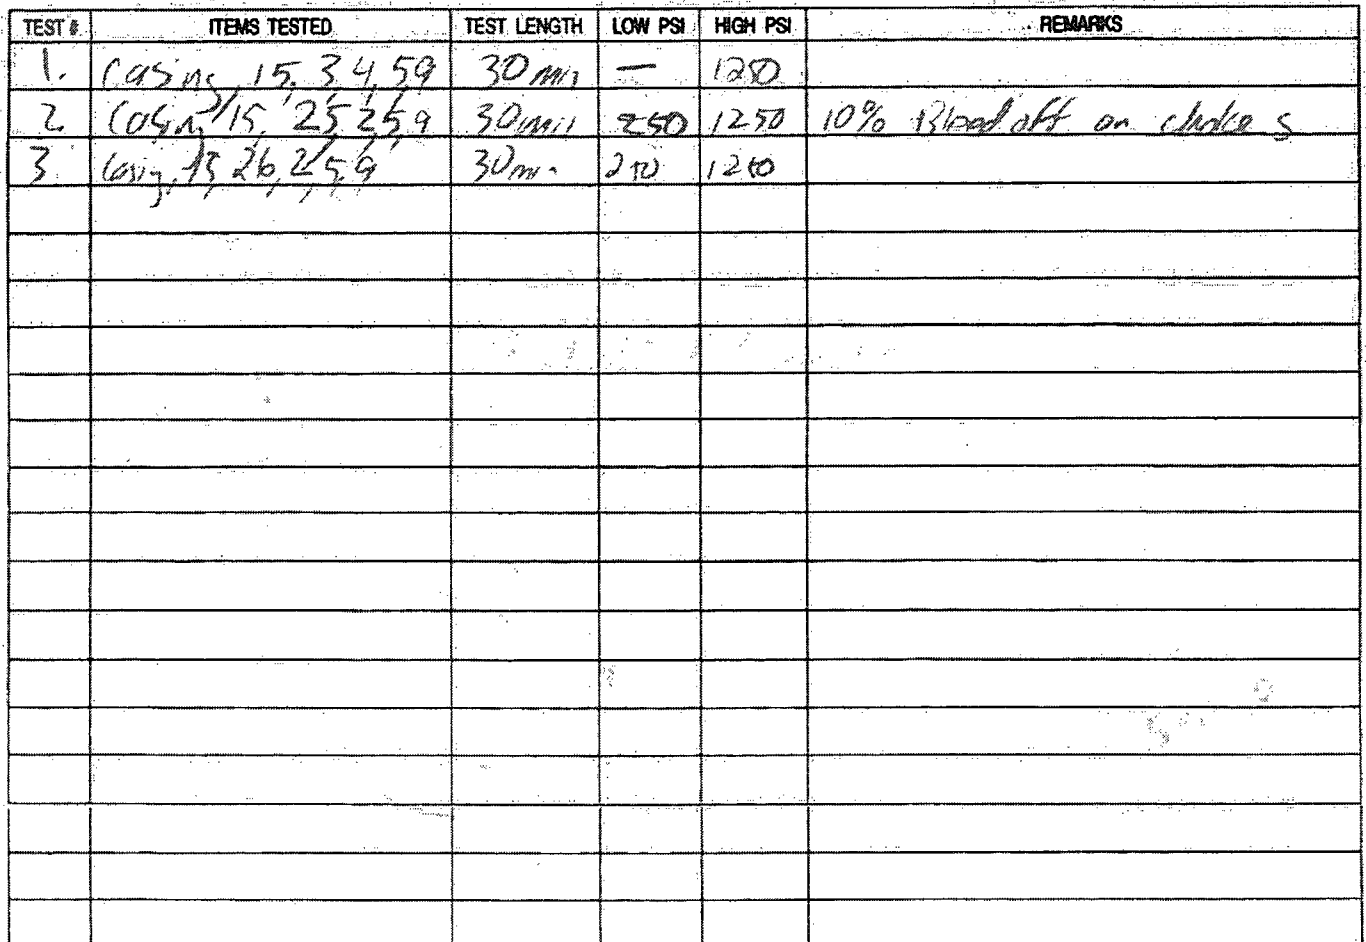 TEST # ITEMS TESTED TEST LENGTH LOW PSI HIGH PSI REMARKS
1. Casing, 15, 3, 4, 5, 9 30 min — 1250
2. Casing, 15, 25, 2, 5, 9 30 min 250 1250 10% Bleed off on chokes
3. Casing, 15, 26, 2, 5, 9 30 min 250 1250